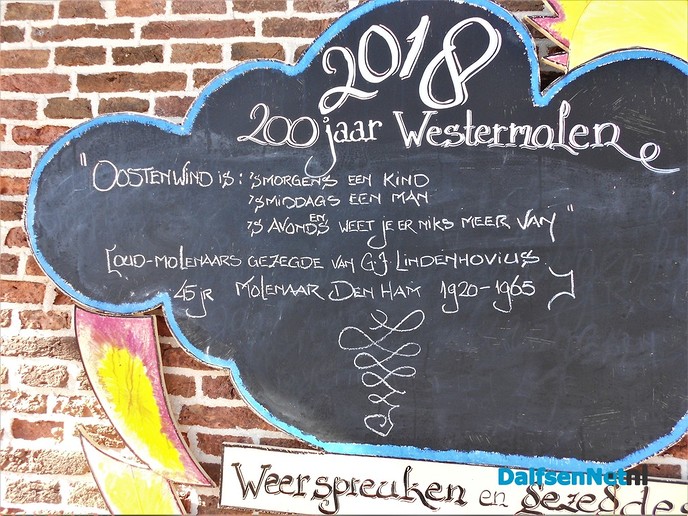 2018
200 jaar Westermolen
"Oostenwind is: 's morgens een kind
's middags een man
en
's avonds weet je er niks meer van"
[oud-molenaars gezegde van G.J. Lindenhovius
45 jr Molenaar Den Ham 1920-1965]
Weerspreuken en gezegdes
DalfsenNet.nl